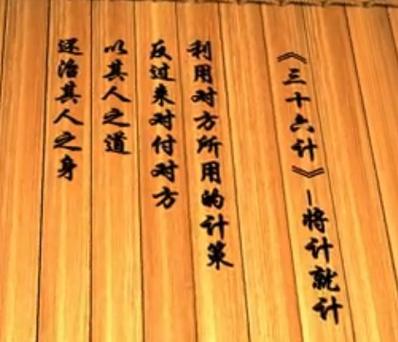 《三十六计》—将计就计
利用对方所用的计策
反过来对付对方
以其人之道
还治其人之身